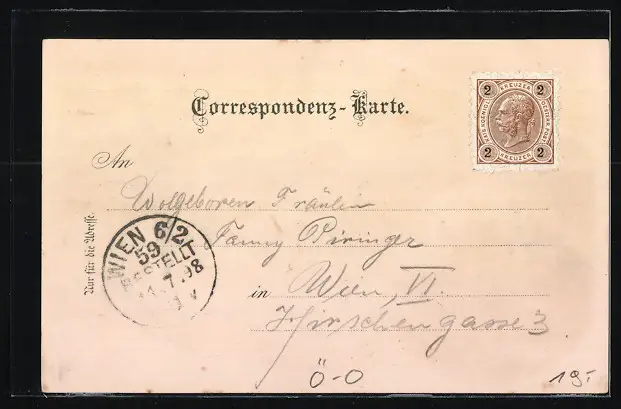 Correspondenz-Karte.
2 KREUZER 2
KAIS. KOENIGL. OESTERR. POST
2 KREUZER 2
An
Wolgeboren Fräulein
Fanny Piringer
in Wien, VI.
Hirschengasse 3
Nur für die Adresse.
WIEN 6/2
59
BESTELLT
11.7.98
Ö-O
19.-